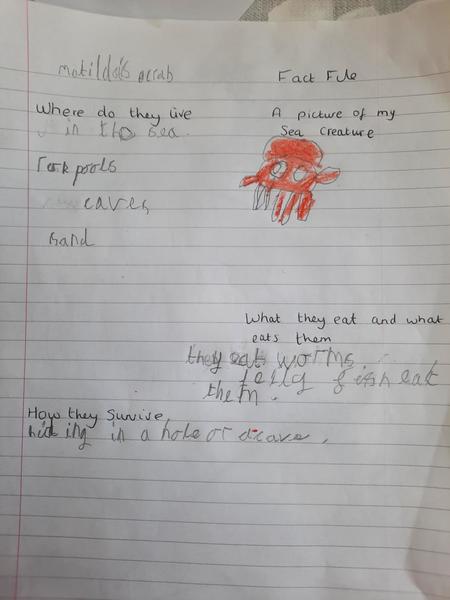 matilda's crab
Fact File
Where do they live
in the sea.
rock pools
caves
sand
A picture of my
Sea Creature
What they eat and what
eats them
they eat worms.
jelly fish eat
them.
How they Survive,
hiding in a hole or a cave.